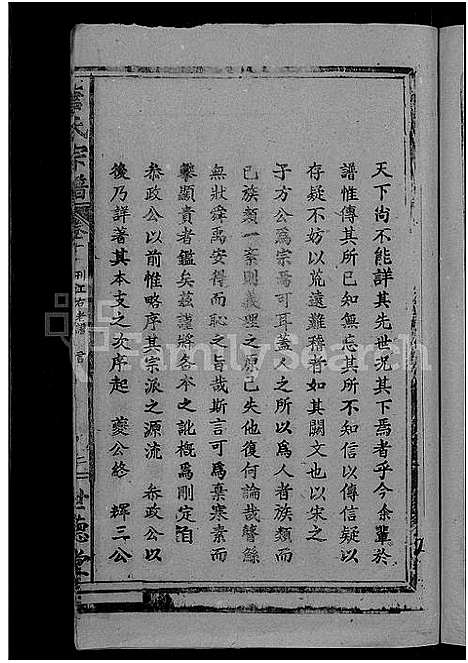 天下尙不能詳其先世况其下焉者乎今余輩於
譜惟傳其所已知無忘其所不知信以傳信疑以
存疑不妨以荒遠難稽者如其闕文也以宋之
子方公爲宗焉可耳蓋人之所以爲人者族類而
已族類一紊則義理之原已失他復何論哉瞽鯀
無狀舜禹安得而恥之旨哉斯言可爲棄寒素而
攀顯貴者鑑矣茲謹將各本之訛槪爲刪定自
叅政公以前惟略序其宗派之源流 叅政公以
後乃詳著其本支之次序起 夔公終 輝三公
氏宗譜
江右老譜
世德堂
FamilySearch